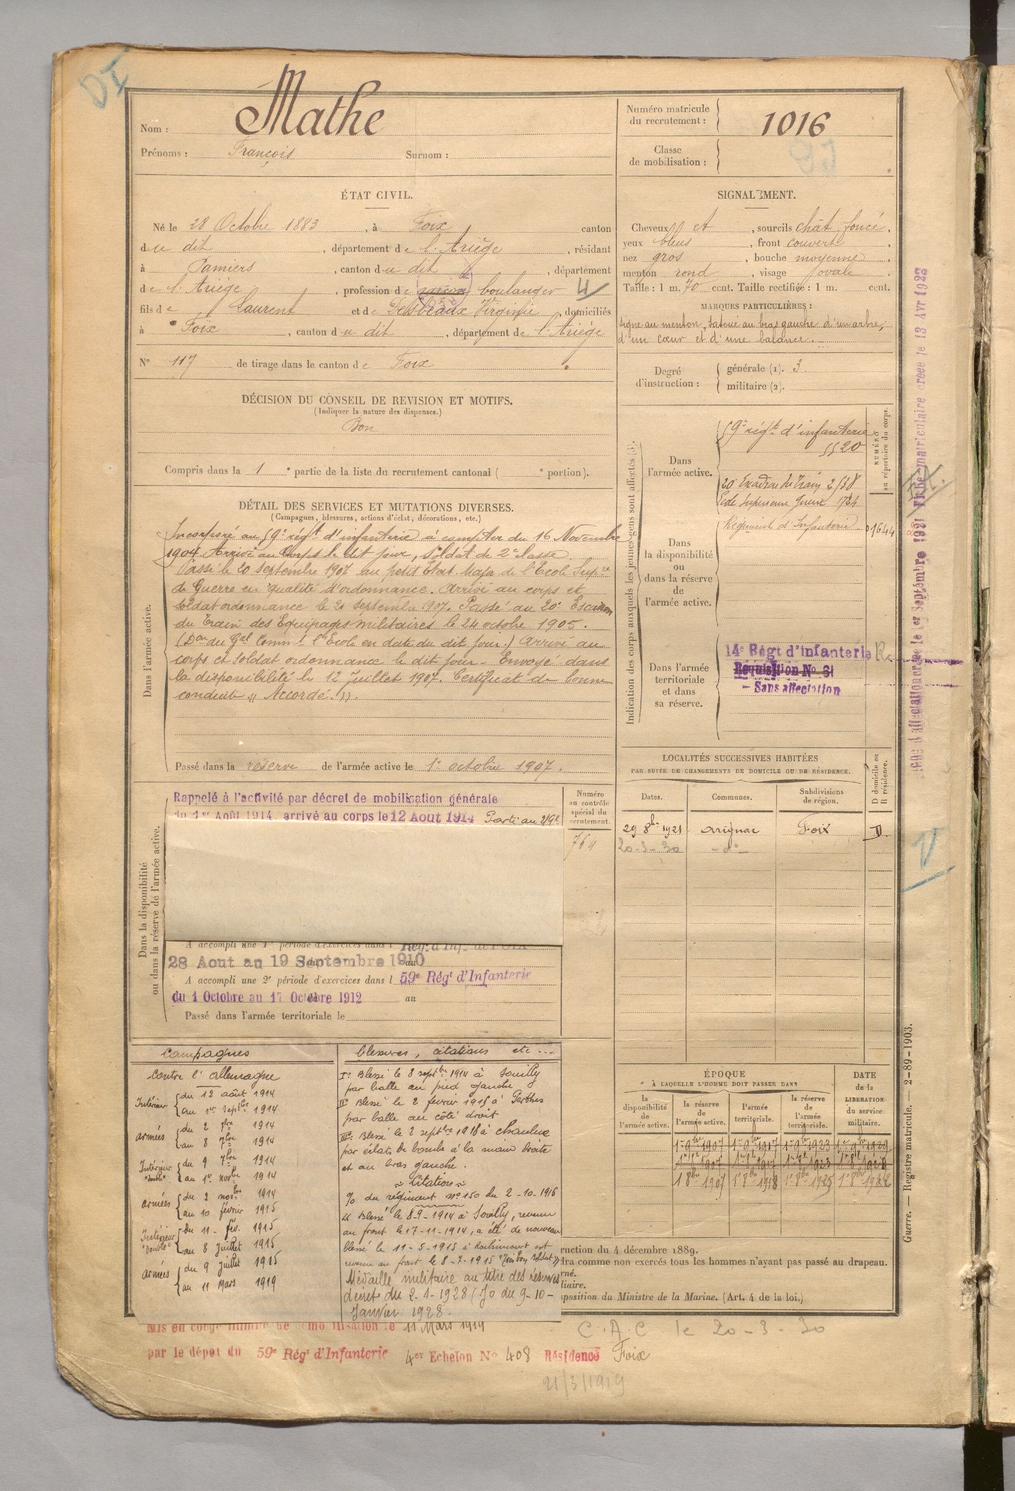 DI
Nom : Mathe
Prénoms : François Surnom :
Numéro matricule du recrutement : 1016
Classe de mobilisation :
ÉTAT CIVIL.
Né le 28 Octobre 1883, à Foix canton
du dit, département de l'Ariège, résidant
à Pamiers, canton du dit, département
de l'Ariège, profession de boulanger
fils de Laurent et de Desbeaux Virginie, domiciliés
à Foix, canton du dit, département de l'Ariège
N° 117 de tirage dans le canton de Foix
DÉCISION DU CONSEIL DE REVISION ET MOTIFS.
(Indiquer la nature des dispenses.)
Bon
Compris dans la 1e partie de la liste du recrutement cantonal ( e portion).
DÉTAIL DES SERVICES ET MUTATIONS DIVERSES.
(Campagnes, blessures, actions d'éclat, décorations, etc.)
Dans l'armée active.
Incorporé au 59e régt d'infanterie à compter du 16 Novembre
1904. Arrivé au Corps le dit jour, Soldat de 2e classe.
Passé le 20 septembre 1907 au petit État Major de l'École Supre
de Guerre en qualité d'ordonnance. Arrivé au corps et
soldat ordonnance le 20 septembre 1907. Passé au 20e Escadron
du Train des Équipages militaires le 24 octobre 1905.
(Don du Gal Commt l'École en date du dit jour.) Arrivé au
corps et soldat ordonnance le dit jour. Envoyé dans
la disponibilité le 12 Juillet 1907. Certificat de bonne
conduite "Accordé".
Passé dans la réserve de l'armée active le 1er octobre 1907.
SIGNALEMENT.
Cheveux et, sourcils chât foncé
yeux bleus, front couvert
nez gros, bouche moyenne
menton rond, visage ovale
Taille : 1 m. 70 cent. Taille rectifiée : 1 m. cent.
MARQUES PARTICULIÈRES :
signe au menton, tatoué au bras gauche d'un arbre,
d'un cœur et d'une balance.
Degré d'instruction : générale (1). 3
militaire (2).
Indication des corps auxquels les jeunes gens sont affectés (3).
NUMÉRO au répertoire du corps.
Dans l'armée active.
59e régt d'infanterie
5520
20e Escadron du Train 2/58
École Supérieure Guerre 1724
Dans la disponibilité ou dans la réserve de l'armée active.
Régiment d'Infanterie 01644
Dans l'armée territoriale et dans sa réserve.
14e Régt d'infanterie
Requisition No 31
Sans affectation
LOCALITÉS SUCCESSIVES HABITÉES
PAR SUITE DE CHANGEMENTS DE DOMICILE OU DE RÉSIDENCE.
D domicile ou R résidence.
Dates. Communes. Subdivisions de région.
29 8bre 1921 Arrignac Foix D
20-3-30 - do -
Dans la disponibilité ou dans la réserve de l'armée active.
Numéro au contrôle spécial du recrutement.
764
Rappelé à l'activité par décret de mobilisation générale
du 1er Août 1914, arrivé au corps le 12 Août 1914
A accompli une 1re période d'exercices dans l Rég. d'Inf. de FOIX
28 Aout au 19 Septembre 1910
A accompli une 2e période d'exercices dans l 59e Régt d'Infanterie
du 1 Octobre au 17 Octobre 1912 au
Passé dans l'armée territoriale le
Campagnes
contre l'allemagne
Intérieur du 12 août 1914
au 1er septbre 1914
armées du 2 7bre 1914
au 8 7bre 1914
Intérieur "blessé" du 9 7bre 1914
au 1er novbre 1914
armées du 2 novbre 1914
au 10 février 1915
Intérieur "blessé" du 11 fév. 1915
au 8 Juillet 1915
armées du 9 Juillet 1915
au 11 Mars 1919
blessures, citations etc...
I° Blessé le 8 septbre 1914 à Souilly
par balle au pied gauche
II° Blessé le 2 février 1915 à Perthes
par balle au côté droit
III° Blessé le 2 septbre 1918 à Chaulnes
par éclats de bombe à la main droite
et au bras gauche.
Citations
O/ du régiment no 150 du 2-10-1915
Blessé le 8-9-1914 à Souilly, revenu
au front le 17-11-1914, a été de nouveau
blessé le 11-5-1915 à
revenu au front le 8-7-1915
Médaille militaire au titre des réserves
décret du 2-1-1928 (Jo du 9-10-
Janvier 1928.
ÉPOQUE
À LAQUELLE L'HOMME DOIT PASSER DANS
la disponibilité de l'armée active.
la réserve de l'armée active.
l'armée territoriale.
la réserve de l'armée territoriale.
DATE de la LIBÉRATION du service militaire.
ruction du 4 décembre 1889.
dra comme non exercés tous les hommes n'ayant pas passé au drapeau.
rné.
liaire.
position du Ministre de la Marine. (Art. 4 de la loi.)
Mis en congé illimité de démobilisation le 11 Mars 1919
par le dépôt du 59e Régt d'Infanterie 4er Echelon No 408 Résidence Foix
C.A.C le 20-3-30
21/3/1919
Guerre. — Registre matricule. — 2-89-1903.